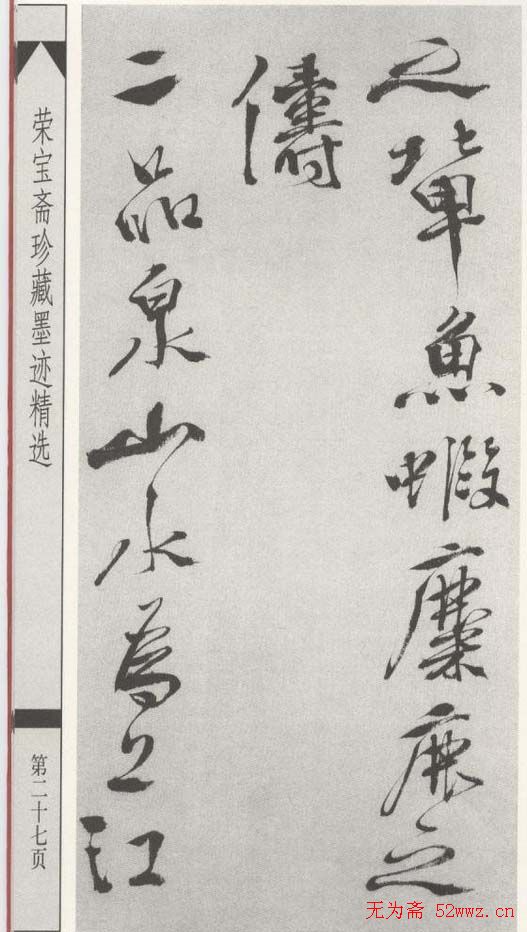 之輩魚蝦麋鹿之
儔
二品泉山水為上江
荣宝斋珍藏墨迹精选
第二十七页
无为斋 52wwz.cn